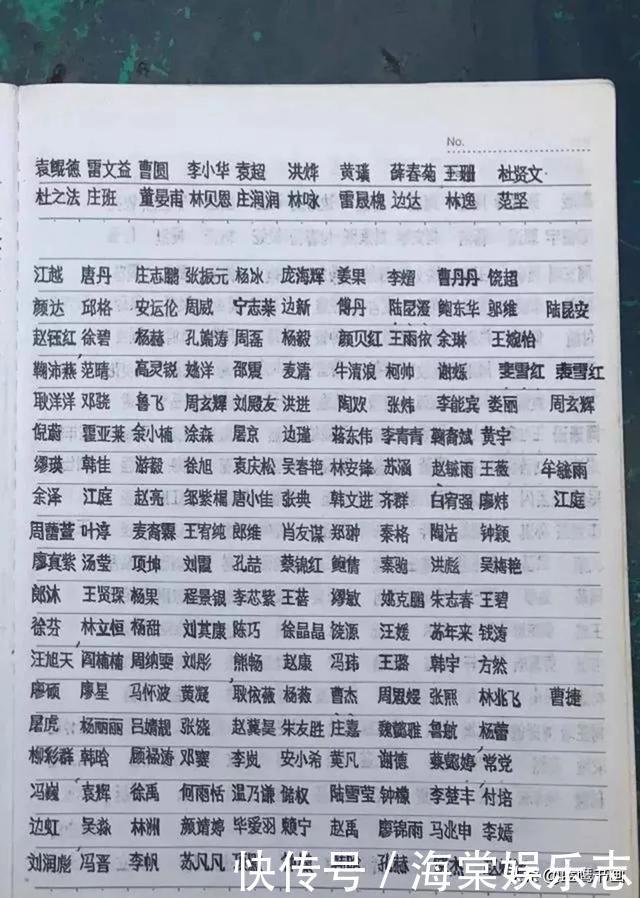 No.
袁鲲德 雷文益 曹圆 李小华 袁超 洪烨 黄璞 薛春菊 王珊 杜贤文
杜之法 庄班 董晏甫 林贝恩 庄润润 林咏 雷晟槐 边达 林逸 范坚
江越 唐丹 庄志鹏 张振元 杨冰 庞海辉 姜果 李熠 曹丹丹 饶超
颜达 邱格 安运伦 周威 宁志莱 边新 傅丹 陆昆漫 鲍东华 邬维 陆昆安
赵钰红 徐碧 杨赫 孔端涛 周磊 杨毅 颜贝红 王雨依 余琳 王婉怡
鞠沛燕 范晴 高灵锐 姚洋 邵震 麦清 牛清浪 柯帅 谢烁 裴雪红 裴雪红
耿洋洋 邓骁 鲁飞 周玄辉 刘殿友 洪进 陶双 张炜 李能宾 娄丽 周玄辉
倪蔚 霍亚莱 余小楠 涂森 屠京 边瑾 蒋东伟 李青青 鞠育斌 黄宇
缪瑛 韩佳 游毅 徐旭 袁庆松 吴春艳 林安锋 苏涵 赵毓雨 王薇 牟毓雨
余泽 江庭 赵亮 邹紫楣 唐小佳 张典 韩文进 齐群 白宥强 廖炜 江庭
周蕾萱 叶淳 麦裔霖 王宥纯 郎维 肖友谋 郑翀 秦格 陶洁 钟颖
廖真紫 汤莹 项坤 刘霞 孔喆 蔡锦红 鲍倩 秦驰 洪彪 吴梅艳
郎沐 王贤琛 杨果 程景银 李芯紫 王萻 缪敏 姚克鹏 朱志春 王碧
徐芬 林立恒 杨甜 刘其康 陈巧 徐晶晶 饶源 汪媛 苏年来 钱涛
汪旭天 阎楠楠 周纳雯 刘彤 熊畅 赵康 冯玮 王璐 韩宇 方然
廖硕 廖星 马怀波 黄凝 耿依薇 杨薇 曹杰 周思煜 张熙 林兆飞 曹捷
屠虎 杨丽丽 吕嫱靓 张饶 赵冀昊 朱友胜 庄嘉 魏懿雅 鲁航 杨蕾
柳彩群 韩晗 顾禄涛 邓霙 李岚 安小希 黄凡 谢德 蔡懿婷 常党
冯巍 袁辉 徐禹 何雨恬 温乃谦 储权 陆雪莹 钟檬 李楚丰 付培
边虹 吴淼 林洲 颜靖婷 毕爱羽 赖宁 赵禹 廖锦雨 马兆申 李嫣
刘润彪 冯晋 李帆 苏凡凡
快传号/海棠娱乐志